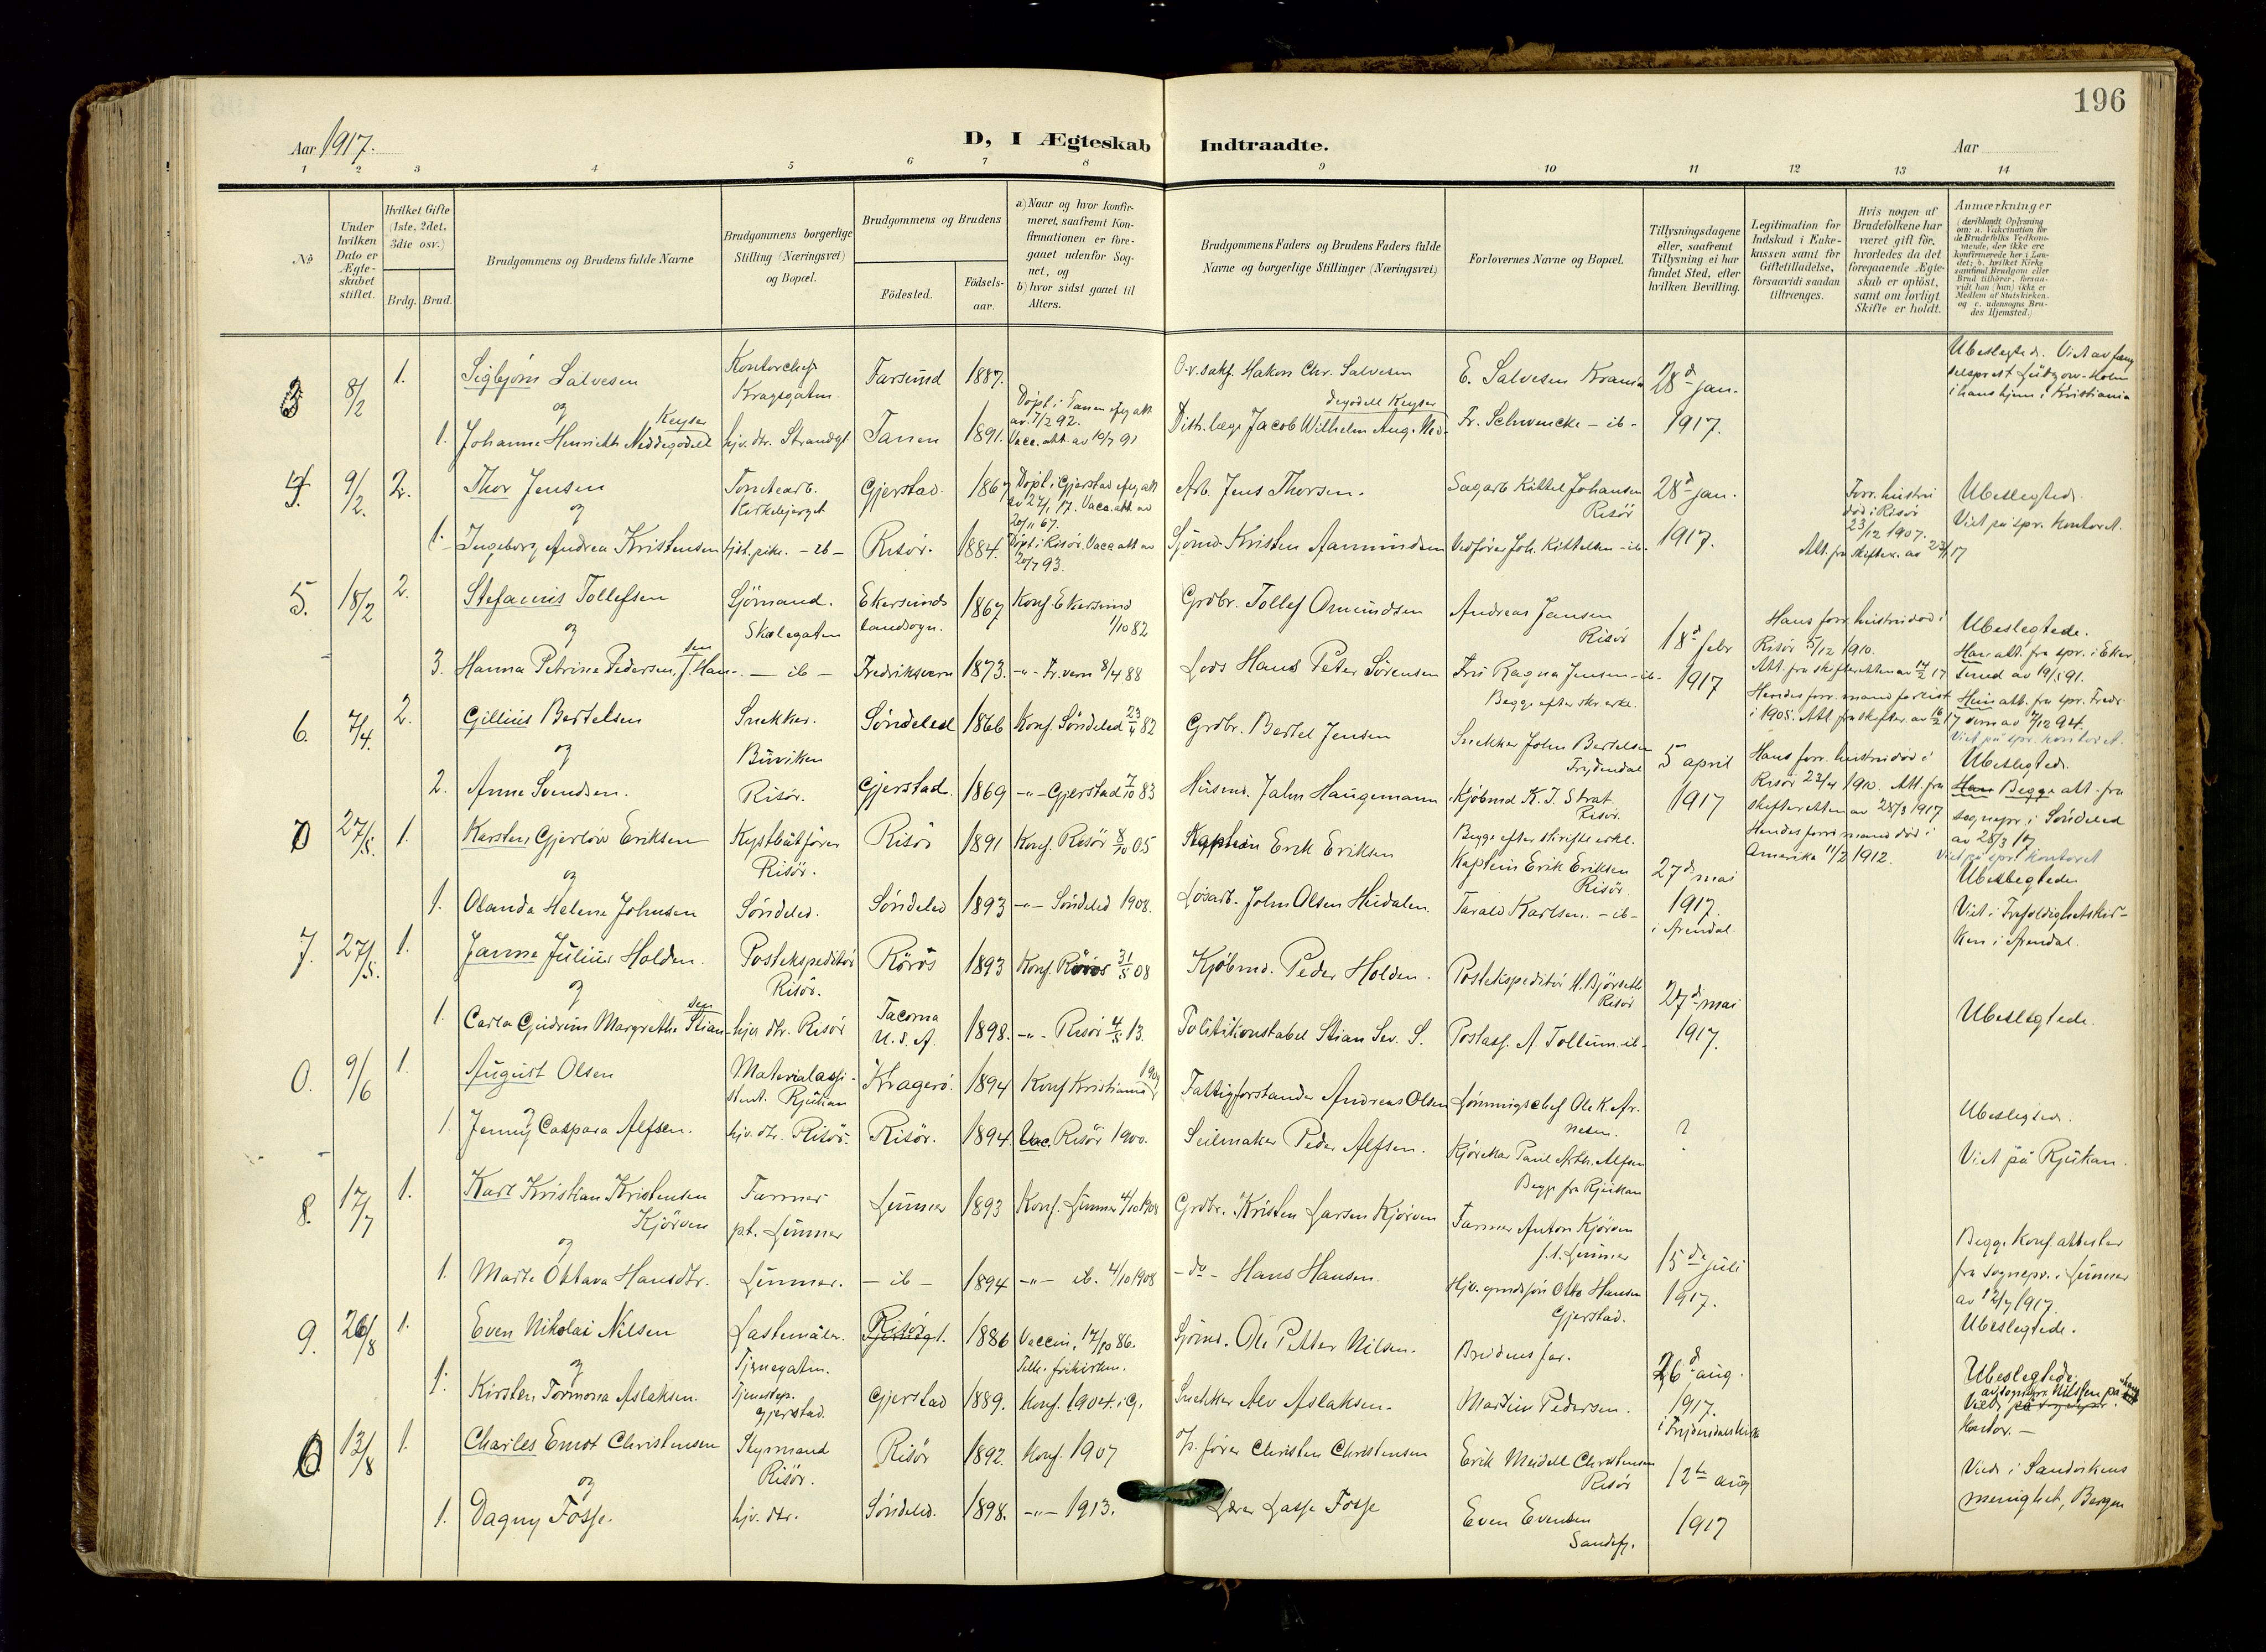 196
Aar 1917.
D, I Ægteskab Indtraadte.
Aar
1 2 3 4 5 6 7 8 9 10 11 12 13 14
No
Under hvilken Dato er Ægteskabet stiftet.
Hvilket Gifte (1ste, 2det, 3die osv.)
Brdg. Brud.
Brudgommens og Brudens fulde Navne
Brudgommens borgerlige Stilling (Næringsvei) og Bopæl.
Brudgommens og Brudens
Fødested.
Fødsels-aar.
a) Naar og hvor konfirmeret, saafremt Konfirmationen er foregaaet udenfor Sognet, og
b) hvor sidst gaaet til Alters.
Brudgommens Faders og Brudens Faders fulde Navne og borgerlige Stillinger (Næringsvei)
Forlovernes Navne og Bopæl.
Tillysningsdagene eller, saafremt Tillysning ei har fundet Sted, efter hvilken Bevilling.
Legitimation for Indskud i Enkekassen samt for Giftetilladelse, forsaavidt saadan tiltrænges.
Hvis nogen af Brudefolkene har været gift før, hvorledes da det foregaaende Ægteskab er opløst, samt om lovligt Skifte er holdt.
Anmærkninger
(deriblandt Oplysning om: a. Vakcination for de Brudefolks Vedkommende, der ikke ere konfirmerede her i Landet; b. hvilket Kirkesamfund Brudgom eller Brud tilhører, forsaavidt han (hun) ikke er Medlem af Statskirken. og c. udensogns Brudes Hjemsted.)
3 8/2 1. Sigbjørn Salvesen Kontorchef Kragsgaten. Farsund 1887. O.r.sakf. Hakon Chr. Salvesen E. Salvesen Krania 28d jan. Ubeslegtede. Viet av fængselsprest Lützow-Holm i hans hjem i Kristiania
og
1. Johanne Henriette Neddegodell Keyser hjv. dtr. Strandgt. Tanen 1891. Døpt i Tanen efter att. av 7/2 92. Vacc. att. av 10/7 91 Distr. læge Jacob Wilhelm Aug. Ned-degodell Keyser Fr. Schwencke - ib - 1917.
4. 9/2. 2. Thor Jensen Tomtearb. Kirkebjerget Gjerstad. 1867 Døpt i Gjerstad efter att. av 27/1 17. Vacc. att. av 20/11 67. Arb. Jens Thorsen. Sagarb. Kittel Johansen Risør 28d jan. Forr. hustru død i Risør 23/12 1907. Ubeslegtede. Viet på spr. kontoret.
og
1. Ingeborg Andrea Kristensen tjst. pike. - ib - Risør. 1884. Døpt i Risør. Vacc att av 20/7 93. Sjømd. Kristen Aanundsen Vedfører Joh. Kittelsen - ib - 1917. Att. fra skifter. av 23/1 17
5. 18/2 2. Stefanius Tollefsen Sjömand. Skolegaten Ekersunds landsogn. 1867 Konf. Ekersund 1/10 82 Grdbr. Tollef Omundsen Andreas Jansen Risør 18d febr Hans forr. hustru død i Risør 5/12 1910. Att. fra skifteretten av 14/2 17 Ubeslegtede. Han att. fra spr. i Ekersund av 19/1 91.
og
3. Hanna Petrine Pedersen, f. Hansen - ib - Fredriksvern 1873. -"- Fr.vern 8/4 88 Lods Hans Peter Sørensen Fru Ragna Jensen - ib - Begge efter skr. erkl. 1917 Hendes forr. mand forlist i 1905. Att. fra skifter. av 16/2 17 Hun att. fra spr. Fredr.vern av 7/12 94. Viet på spr. kontoret.
6. 7/4. 2. Gillius Bertelsen Snekker. Buviken Søndeled 1866 Konf. Søndeled 23/4 82 Grdbr. Bertel Jensen Snekker John Bertelsen Frydendal 5 april Hans forr. hustru død i Risør 23/4 1910. Att. fra skifteretten av 28/3 1917 Ubeslegtede.
og
2. Anne Svendsen. Risør. Gjerstad. 1869 -"- Gjerstad 7/10 83 Husmd. Jahn Haugemann Kjøbmd K. J. Strat. Risør. Begge efter skriftl. erkl. 1917 Hendes forr. mand død i Amerika 11/2 1912. Han Begge att. fra sognepr. i Søndeled av 28/3 17 Viet på spr. kontoret
0 27/5. 1. Karsten Gjerløw Eriksen Kystbåtfører Risør. Risør 1891 Konf. Risør 8/10 05 Kaptein Erik Eriksen Kaptein Erik Eriksen Risør. 27de mai Ubeslegtede
og
1. Olanda Helene Johnsen Søndeled. Søndeled 1893 -"- Søndeled 1908. Løsarb. John Olsen Heidalen. Tarald Karlsen. - ib - 1917. i Arendal. Viet i Trefoldighetskirken i Arendal.
7. 27/5. 1. Janne Julius Holden. Postekspeditør Risør. Röros 1893 Konf. Röros 31/5 08 Kjøbmd. Peder Holden. Postekspeditør H. Bjørseth Risør 27de mai Ubeslegtede.
og
1. Carla Gudrun Margrethe Stiansen hjv. dtr. Risør Tacoma U.S.A. 1898. -"- Risør 4/5 13. Politikonstabel Stian Sev. S. Postass. A. Tollum - ib - 1917.
0. 9/6 1. August Olsen Materialassistent. Rjukan Kragerø. 1894 Konf Kristiania 1909 Fattigforstander Andreas Olsen Lønningschef Ole K. Ar. ? Ubeslegtede.
og
1. Jenny Caspara Alfsen. hjv. dtr. Risør. Risør. 1894. Vac. Risør 1900. Seilmaker Peder Alfsen. Paul Arth. Alfsen Begge fra Rjukan Viet på Rjukan.
8. 17/7 1. Karl Kristian Kristensen Kjørven Farmer p.t. Lunner Lunner 1893 Konf. Lunner 4/10 1908 Grdbr. Kristen Larsen Kjørven Farmer Anton Kjørven p.t. Lunner 15de juli Begge konf. attester
og
1. Marte Oktava Hansdtr. Lunner. - ib - 1894 -"- ib. 4/10 1908 - do - Hans Hansen. Otto Hansen Gjerstad. 1917. fra sognepr. i Lunner av 12/7 1917. Ubeslegtede.
9. 26/8 1. Even Nikolai Nilsen Lastemåler. Tjennegaten. Risør 1886 Vaccin. 17/10 86. Tilh. frikirken. Sjømd. Ole Petter Nilsen. Brudens far. 26d aug. Ubeslegtede.
og
1. Kirsten Tormona Aslaksen. Tjenestep. Gjerstad. Gjerstad 1889. Konf. 1904. i G. Snekker Alv Aslaksen. Martin Pedersen. 1917. Viedt av sognepr. Nilssen på kontor. -
0. 12/8 1. Charles Emot Christensen Styrmand Risør. Risør 1892. Konf. 1907 Christen Christensen Erik Meidell Christensen Risør 12te aug Viede i Sandvikens menighet, Bergen
og
1. Dagny Fosse. hjv. dtr. Søndeled. 1898. -"- 1913. Lærer Lasse Fosse Even Evensen Sandefj. 1917